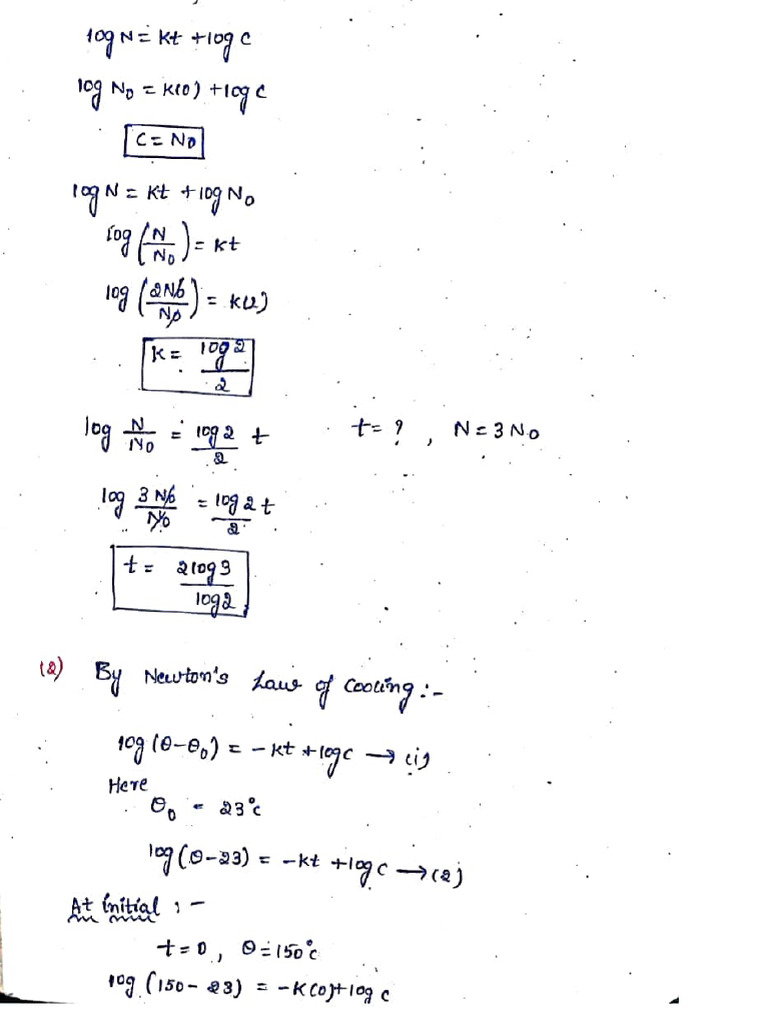 log N = kt + log c
log N₀ = k(0) + log c
C = N₀
log N = kt + log N₀
log (N/N₀) = kt
log (2N₀/N₀) = k(2)
k = log 2/2
log N/N₀ = log 2/2 t t = ? , N = 3 N₀
log 3 N₀/N₀ = log 2 t/2
t = 2 log 3/log 2
(2) By Newton's Law of Cooling :-
log (θ-θ₀) = -kt + log c → (i)
Here
θ₀ = 23°c
log (θ-23) = -kt + log c → (2)
At initial :-
t = 0, θ = 150°c
log (150 - 23) = -k(0) + log c